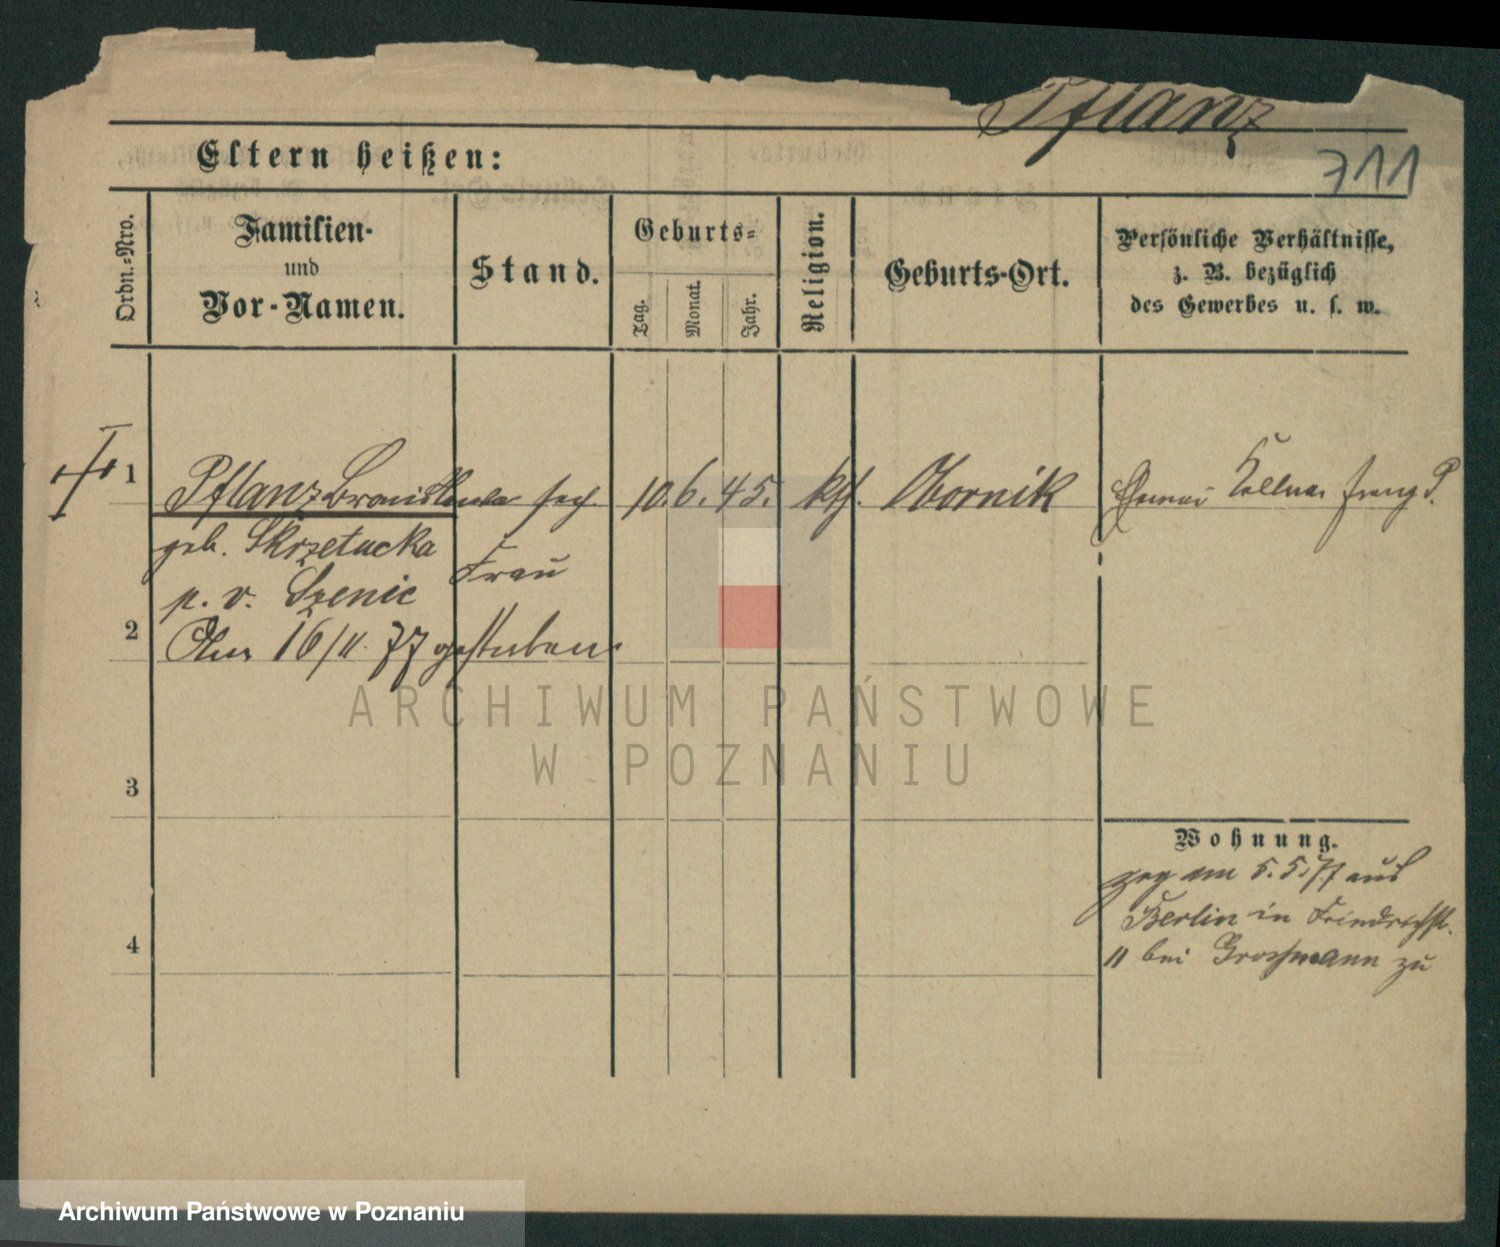 Pflanz
711
Eltern heißen:
Ordn.-Nro.
Familien-
und
Vor-Namen.
Stand.
Geburts-
Tag.
Monat.
Jahr.
Religion.
Geburts-Ort.
Persönliche Verhältnisse,
z. B. bezüglich
des Gewerbes u. s. w.
1 Pflanz Bronislawa sep. 10. 6. 45. kth. Obornik Kellner Franz P.
geb. Skrzetucka
Frau
p. v. Szenic
2
16/11. 77 gestorben
ARCHIWUM PAŃSTWOWE
W POZNANIU
3
Wohnung.
zog am 5. 5. 77 aus
Berlin in Friedrichst.
4
11 bei Grossmann zu
Archiwum Państwowe w Poznaniu